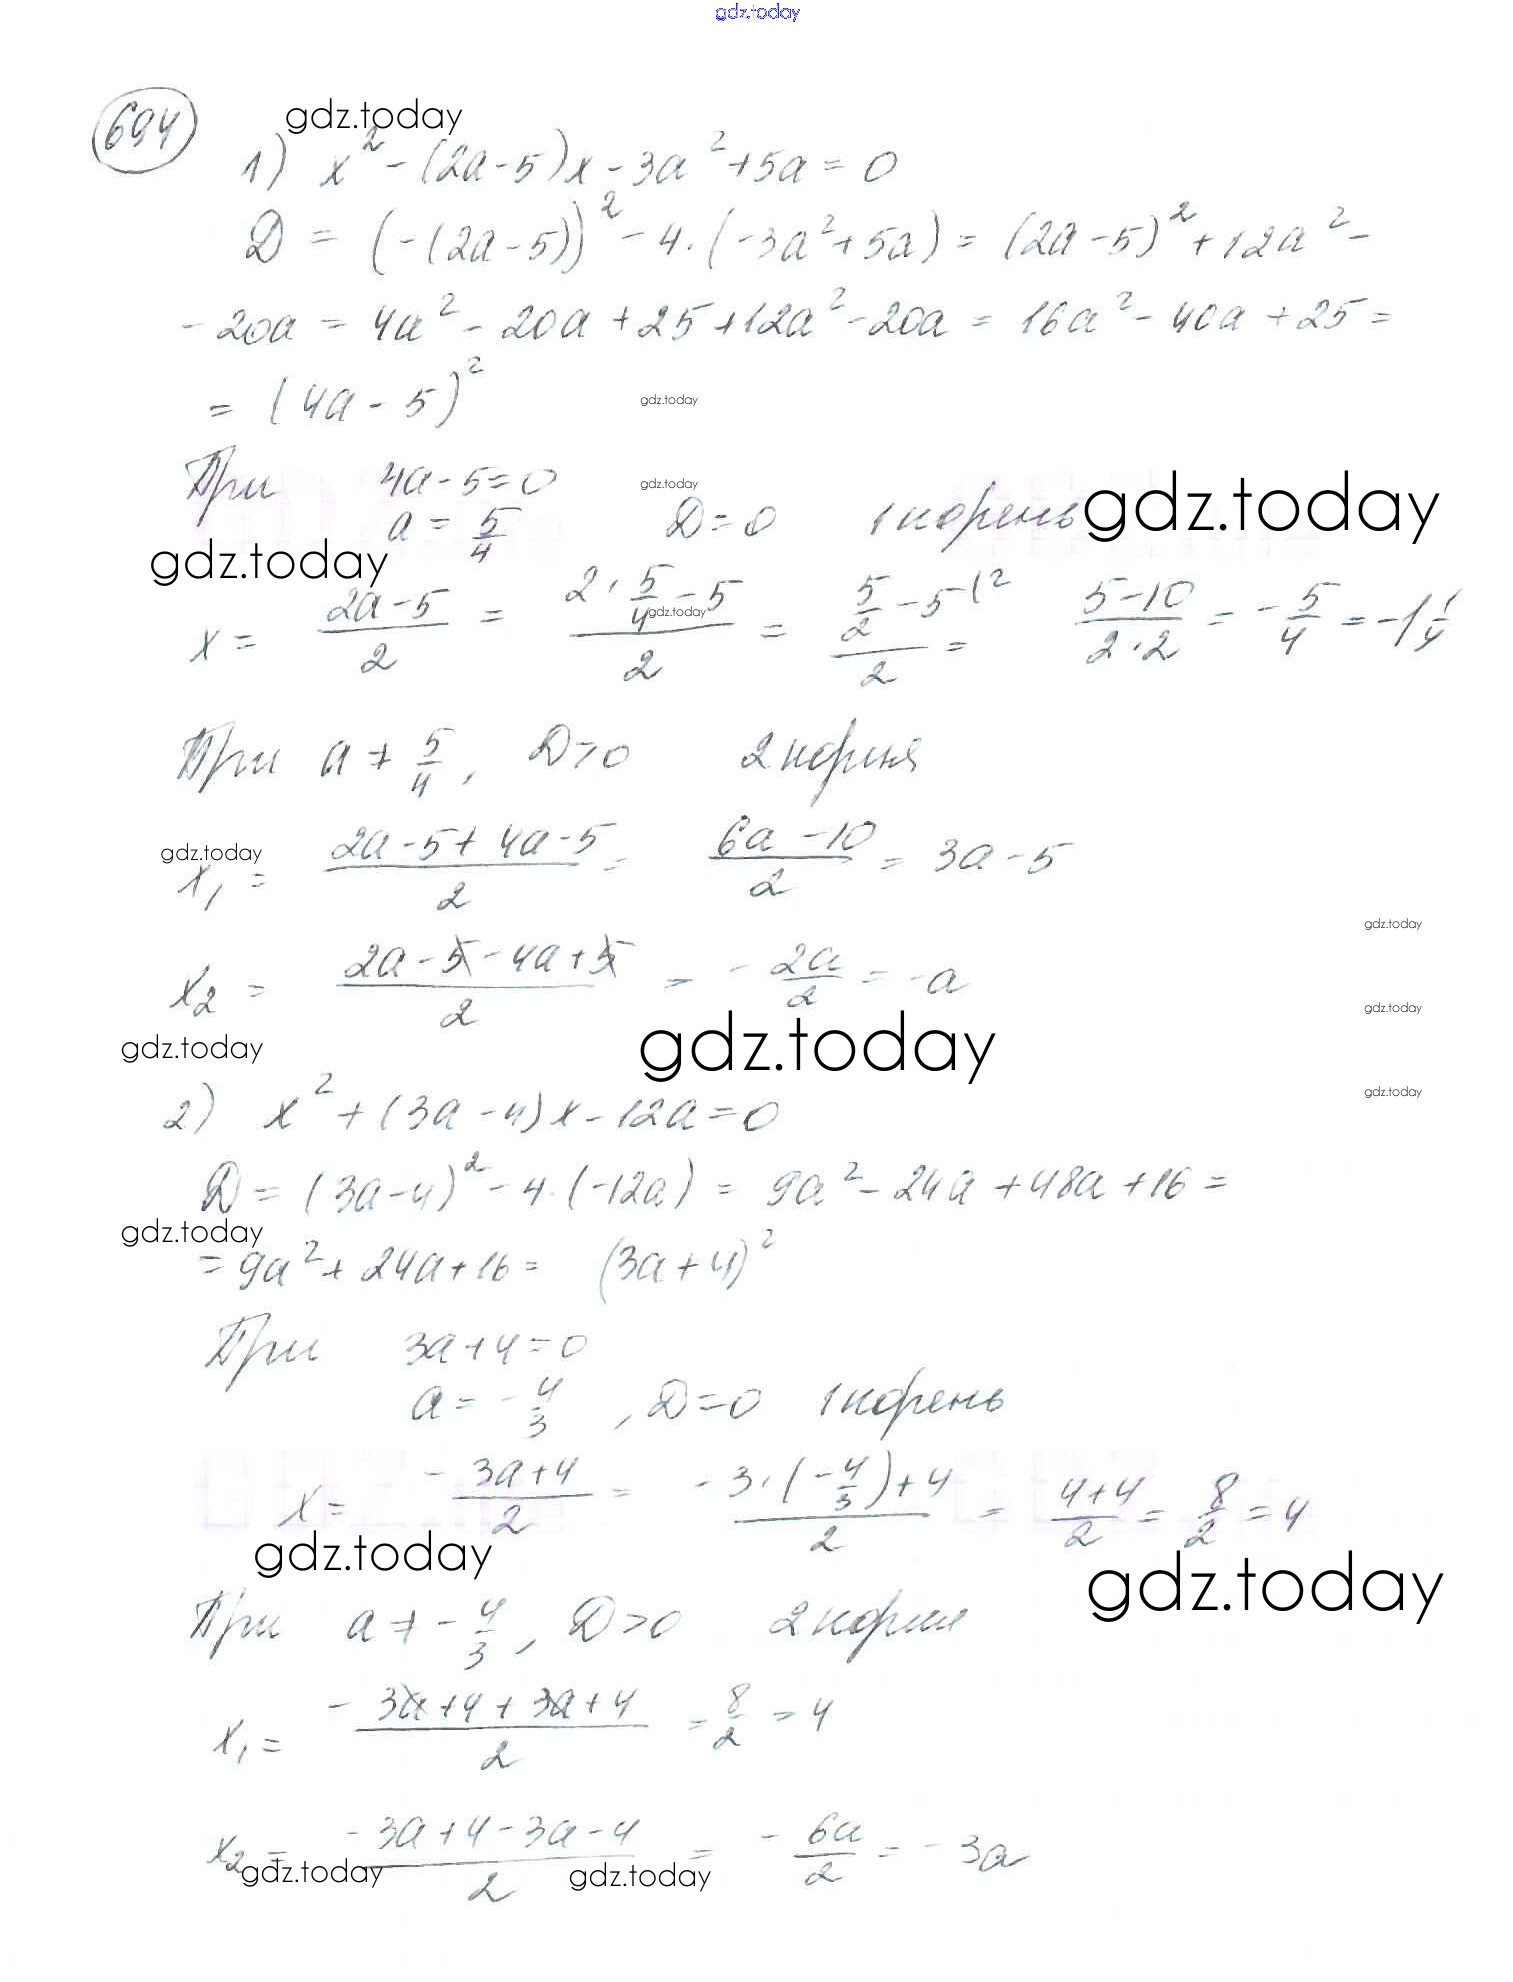 gdz.today
694
gdz.today
1) x² - (2a - 5)x - 3a² + 5a = 0
D = (-(2a - 5))² - 4·(-3a² + 5a) = (2a - 5)² + 12a² -
- 20a = 4a² - 20a + 25 + 12a² - 20a = 16a² - 40a + 25 =
= (4a - 5)²
gdz.today
При 4a - 5 = 0
gdz.today
a = 5/4 D = 0 1 корень
gdz.today
gdz.today
x = (2a - 5)/2 = (2·5/4 - 5)/2 = (5/2 - 5^(2)/2 = (5 - 10)/(2·2) = -5/4 = -1 1/4
gdz.today
При a ≠ 5/4, D > 0 2 корня
gdz.today
x₁ = (2a - 5 + 4a - 5)/2 = (6a - 10)/2 = 3a - 5
gdz.today
x₂ = (2a - 5 - 4a + 5)/2 = -2a/2 = -a
gdz.today
gdz.today
gdz.today
gdz.today
2) x² + (3a - 4)x - 12a = 0
D = (3a - 4)² - 4·(-12a) = 9a² - 24a + 48a + 16 =
gdz.today
= 9a² + 24a + 16 = (3a + 4)²
При 3a + 4 = 0
a = -4/3, D = 0 1 корень
x = (-3a + 4)/2 = (-3·(-4/3) + 4)/2 = (4 + 4)/2 = 8/2 = 4
gdz.today
gdz.today
При a ≠ -4/3, D > 0 2 корня
x₁ = (-3a + 4 + 3a + 4)/2 = 8/2 = 4
x₂ = (-3a + 4 - 3a - 4)/2 = -6a/2 = -3a
gdz.today
gdz.today